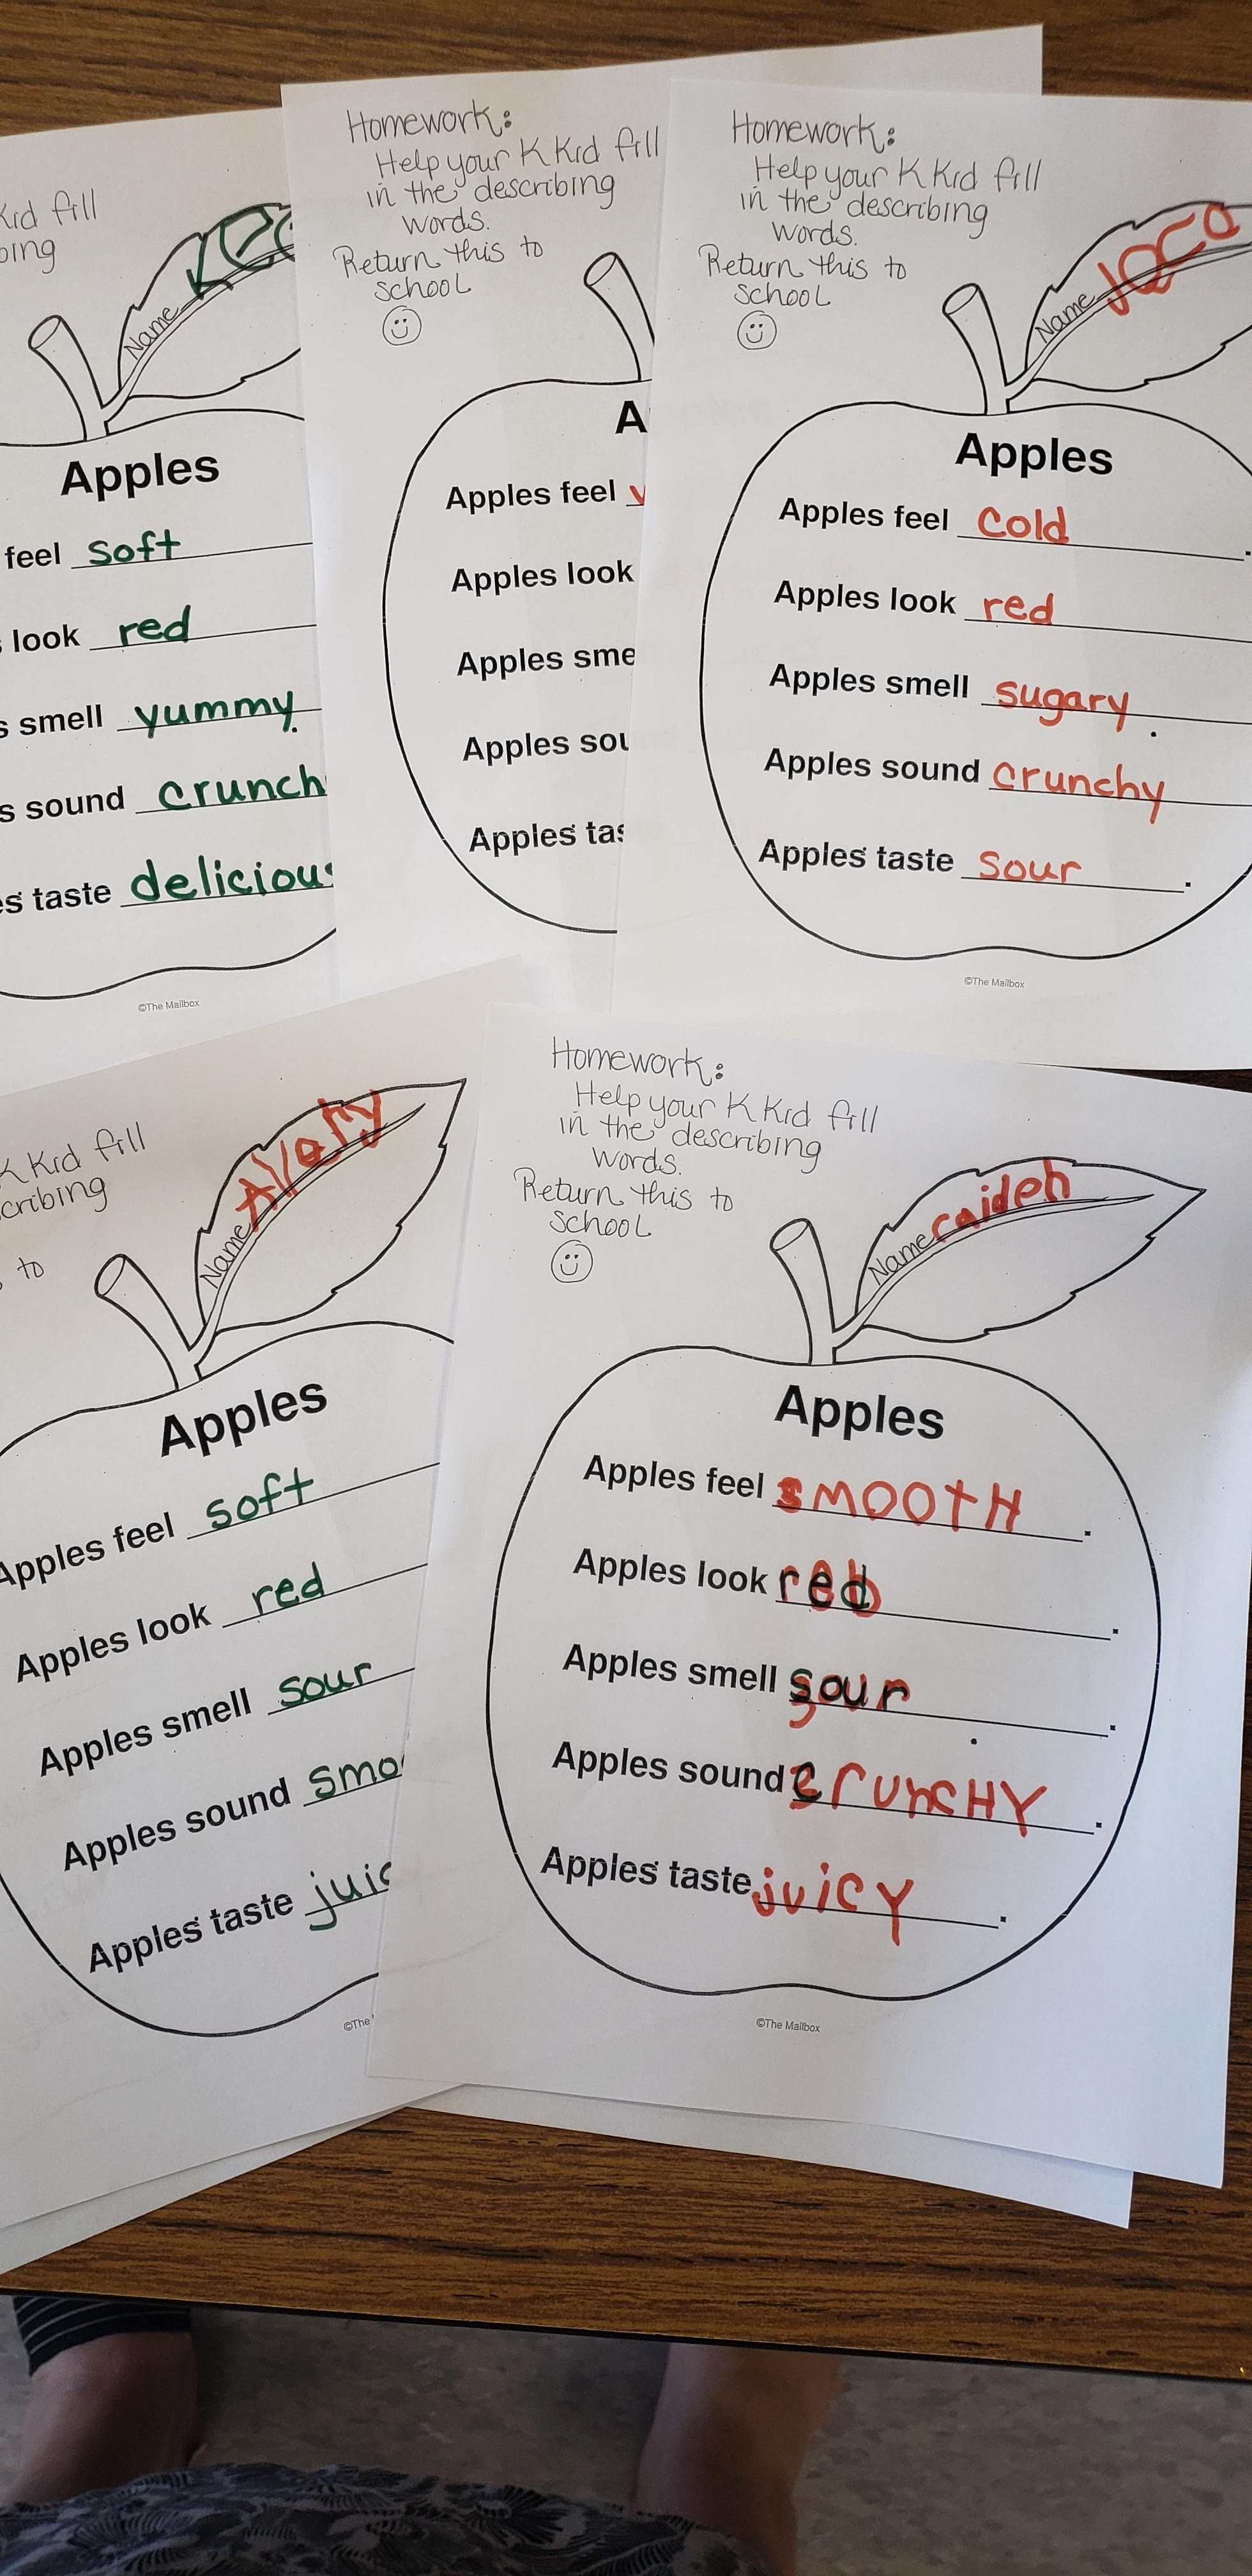 Kid fill
Name
Apples
feel soft
look red
smell yummy.
sound crunch
taste delicious
©The Mailbox
Homework:
Help your K Kid fill
in the describing
words.
Return this to
school
Apples feel
Apples look
Apples
Apples
Apples
Homework:
Help your K Kid fill
in the describing
words.
Return this to
school
Name Jaco
Apples
Apples feel cold.
Apples look red
Apples smell sugary.
Apples sound crunchy
Apples taste sour.
©The Mailbox
K Kid fill
to
Name
Apples
Apples feel soft
Apples look red
Apples smell sour
Apples sound smo
Apples taste juic
©The
Homework:
Help your K Kid fill
in the describing
words.
Return this to
school
Name caiden
Apples
Apples feel sMOOtH.
Apples look red.
Apples smell sour.
Apples sound crunchY.
Apples taste juicY.
©The Mailbox